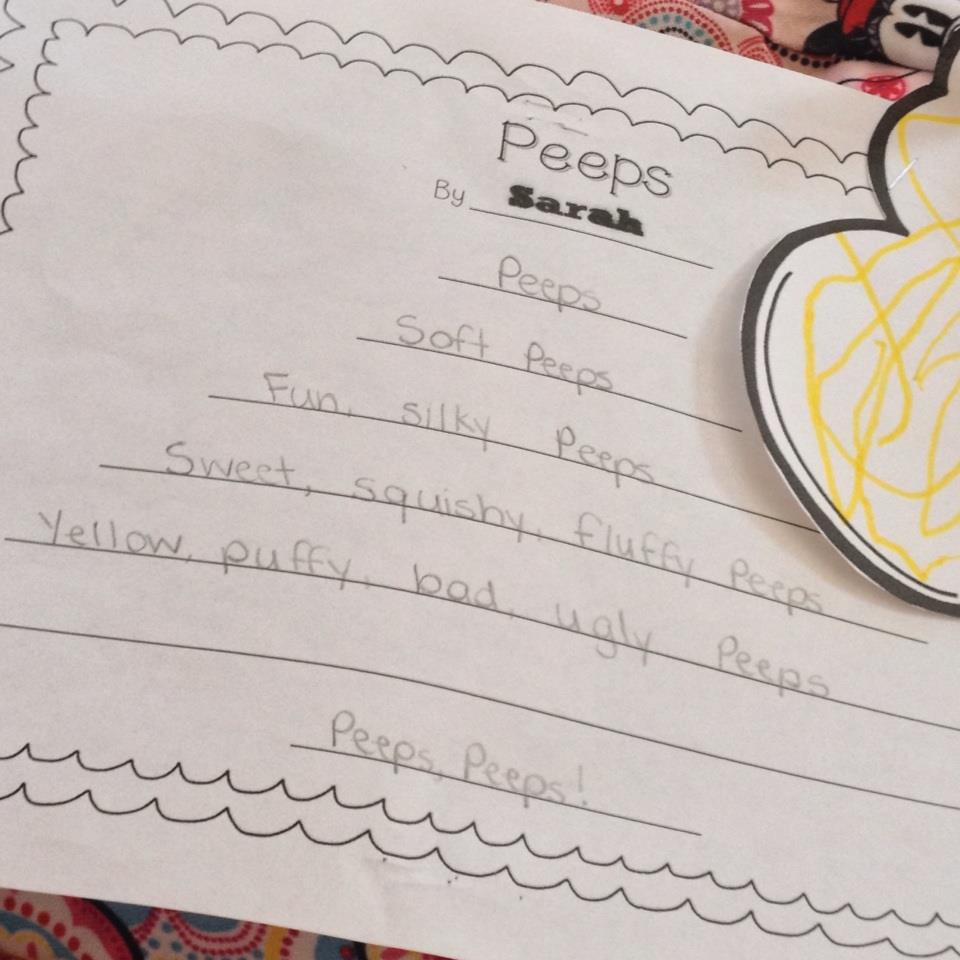 Peeps
By Sarah
Peeps
Soft Peeps
Fun, silky Peeps
Sweet, squishy, fluffy Peeps
Yellow, puffy, bad, ugly Peeps
Peeps, Peeps!